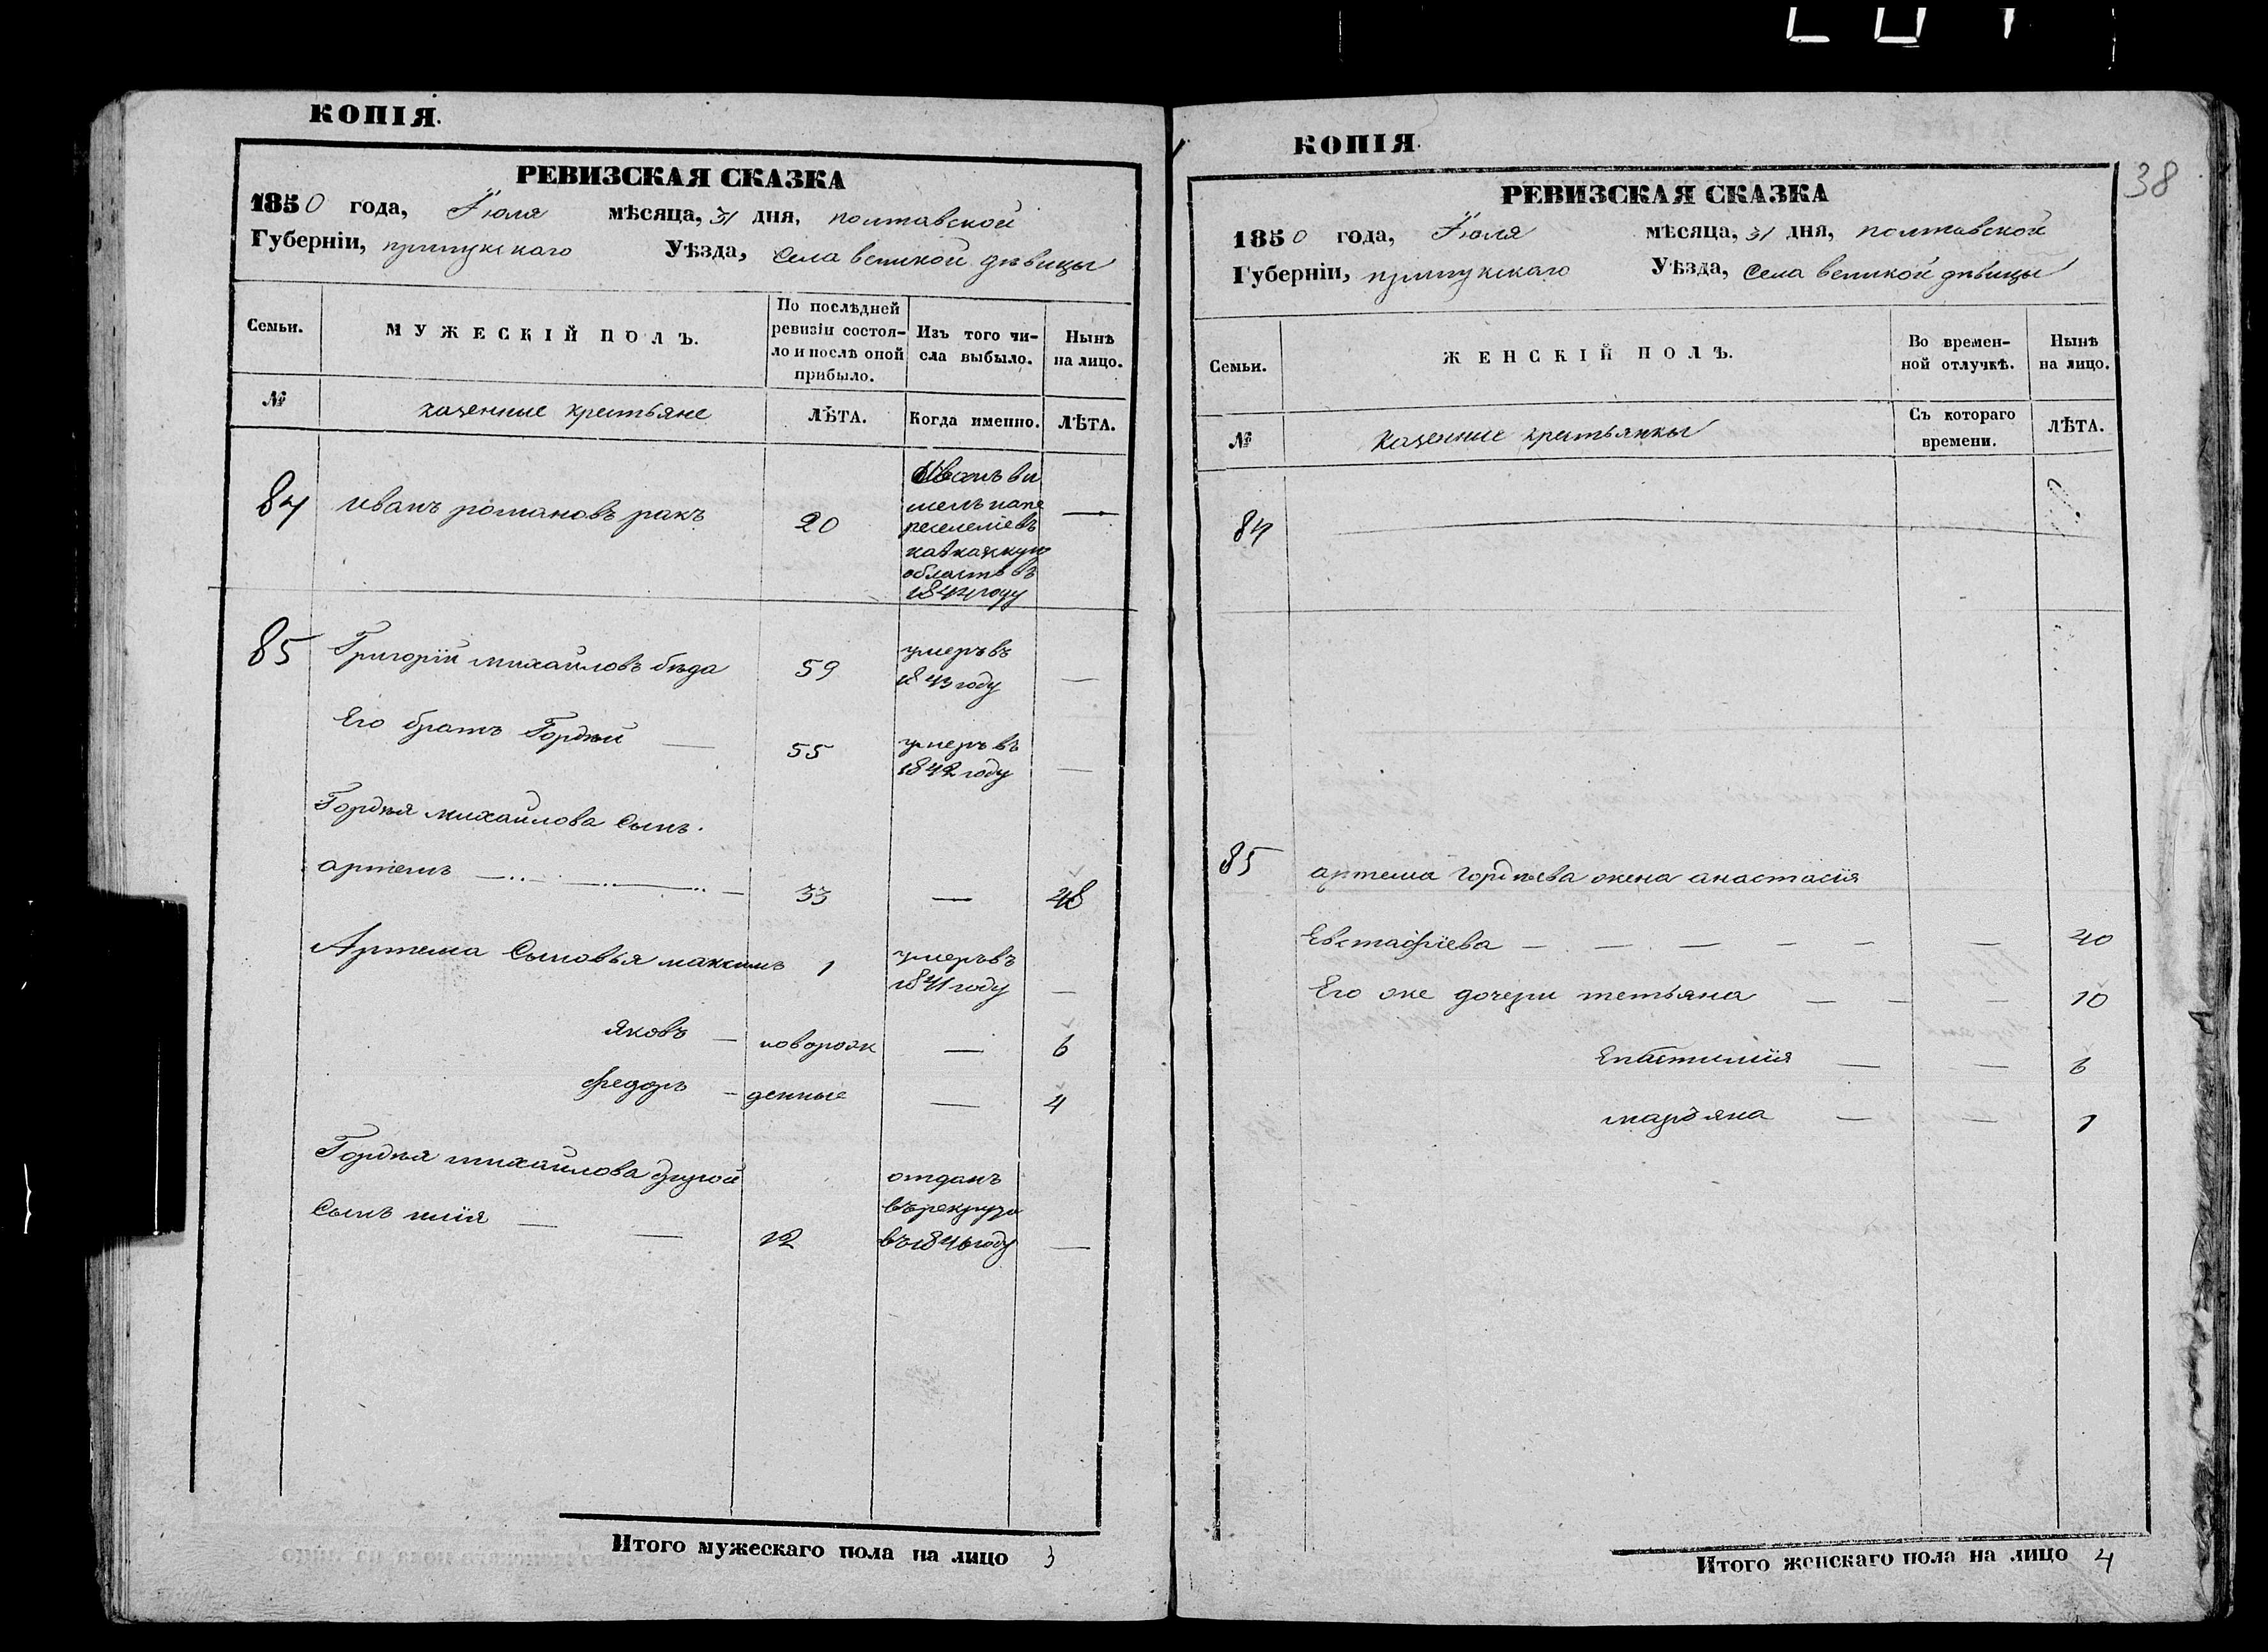 КОПІЯ.
РЕВИЗСКАЯ СКАЗКА
1850 года, Іюля мѣсяца, 31 дня, полтавской
Губерніи, прилукскаго Уѣзда, села великой дѣвицы
Семьи.
МУЖЕСКІЙ ПОЛЪ.
По послѣдней
ревизіи состоя-
ло и послѣ оной
прибыло.
Изъ того чи-
сла выбыло.
Нынѣ
на лицо.
№
казенные крестьяне
ЛѢТА.
Когда именно.
ЛѢТА.
84 иванъ романовъ ракъ 20
области въ
году —
85 Григорій михайловъ бѣда 59
умеръ въ
1843 году —
Его братъ Гордѣй — 55
умеръ въ
1842 году —
Гордѣя михайлова сынъ.
артемъ — 33 — 48
Артема сыновья максимъ 1
умеръ въ
1841 году —
яковъ — новорож — 6
федоръ — денные — 4
Гордѣя михайлова другой
сынъ илія — — 12
отданъ
въ рекруты
въ 1846 году —
Итого мужескаго пола на лицо 3
КОПІЯ.
38
РЕВИЗСКАЯ СКАЗКА
1850 года, Іюля мѣсяца, 31 дня, полтавской
Губерніи, прилукскаго Уѣзда, села великой дѣвицы
Семьи.
ЖЕНСКІЙ ПОЛЪ.
Во времен-
ной отлучкѣ.
Нынѣ
на лицо.
№
казенные крестьянки
Съ котораго
времени.
ЛѢТА.
84
85 артема гордѣева жена анастасія
Евстафіева — — — — — — 40
Его же дочери тетьяна — — — 10
— — 6
марьяна — — 1
Итого женскаго пола на лицо 4